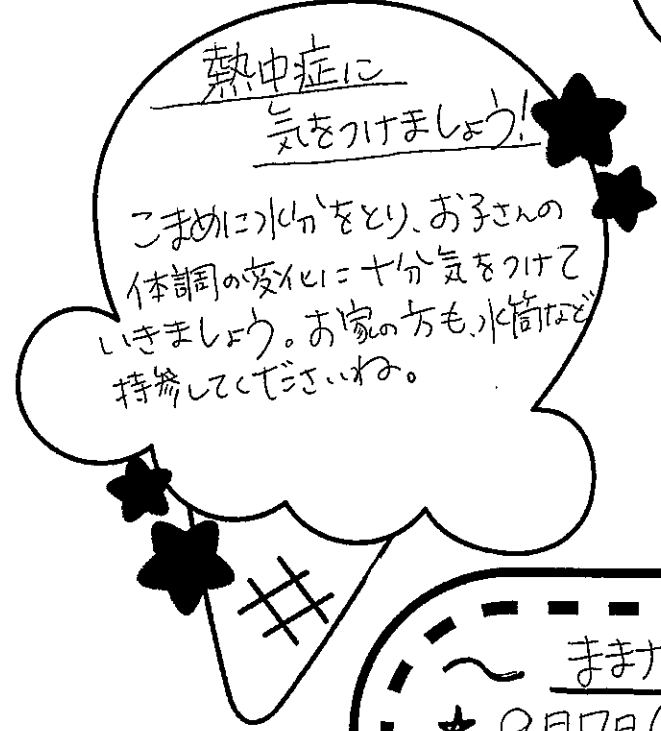 熱中症に
気をつけましょう!
こまめに水分をとり、お子さんの
体調の変化に十分気をつけて
いきましょう。お家の方も、水筒など
持参してくださいね。
〜 まま
★ 9月7日(